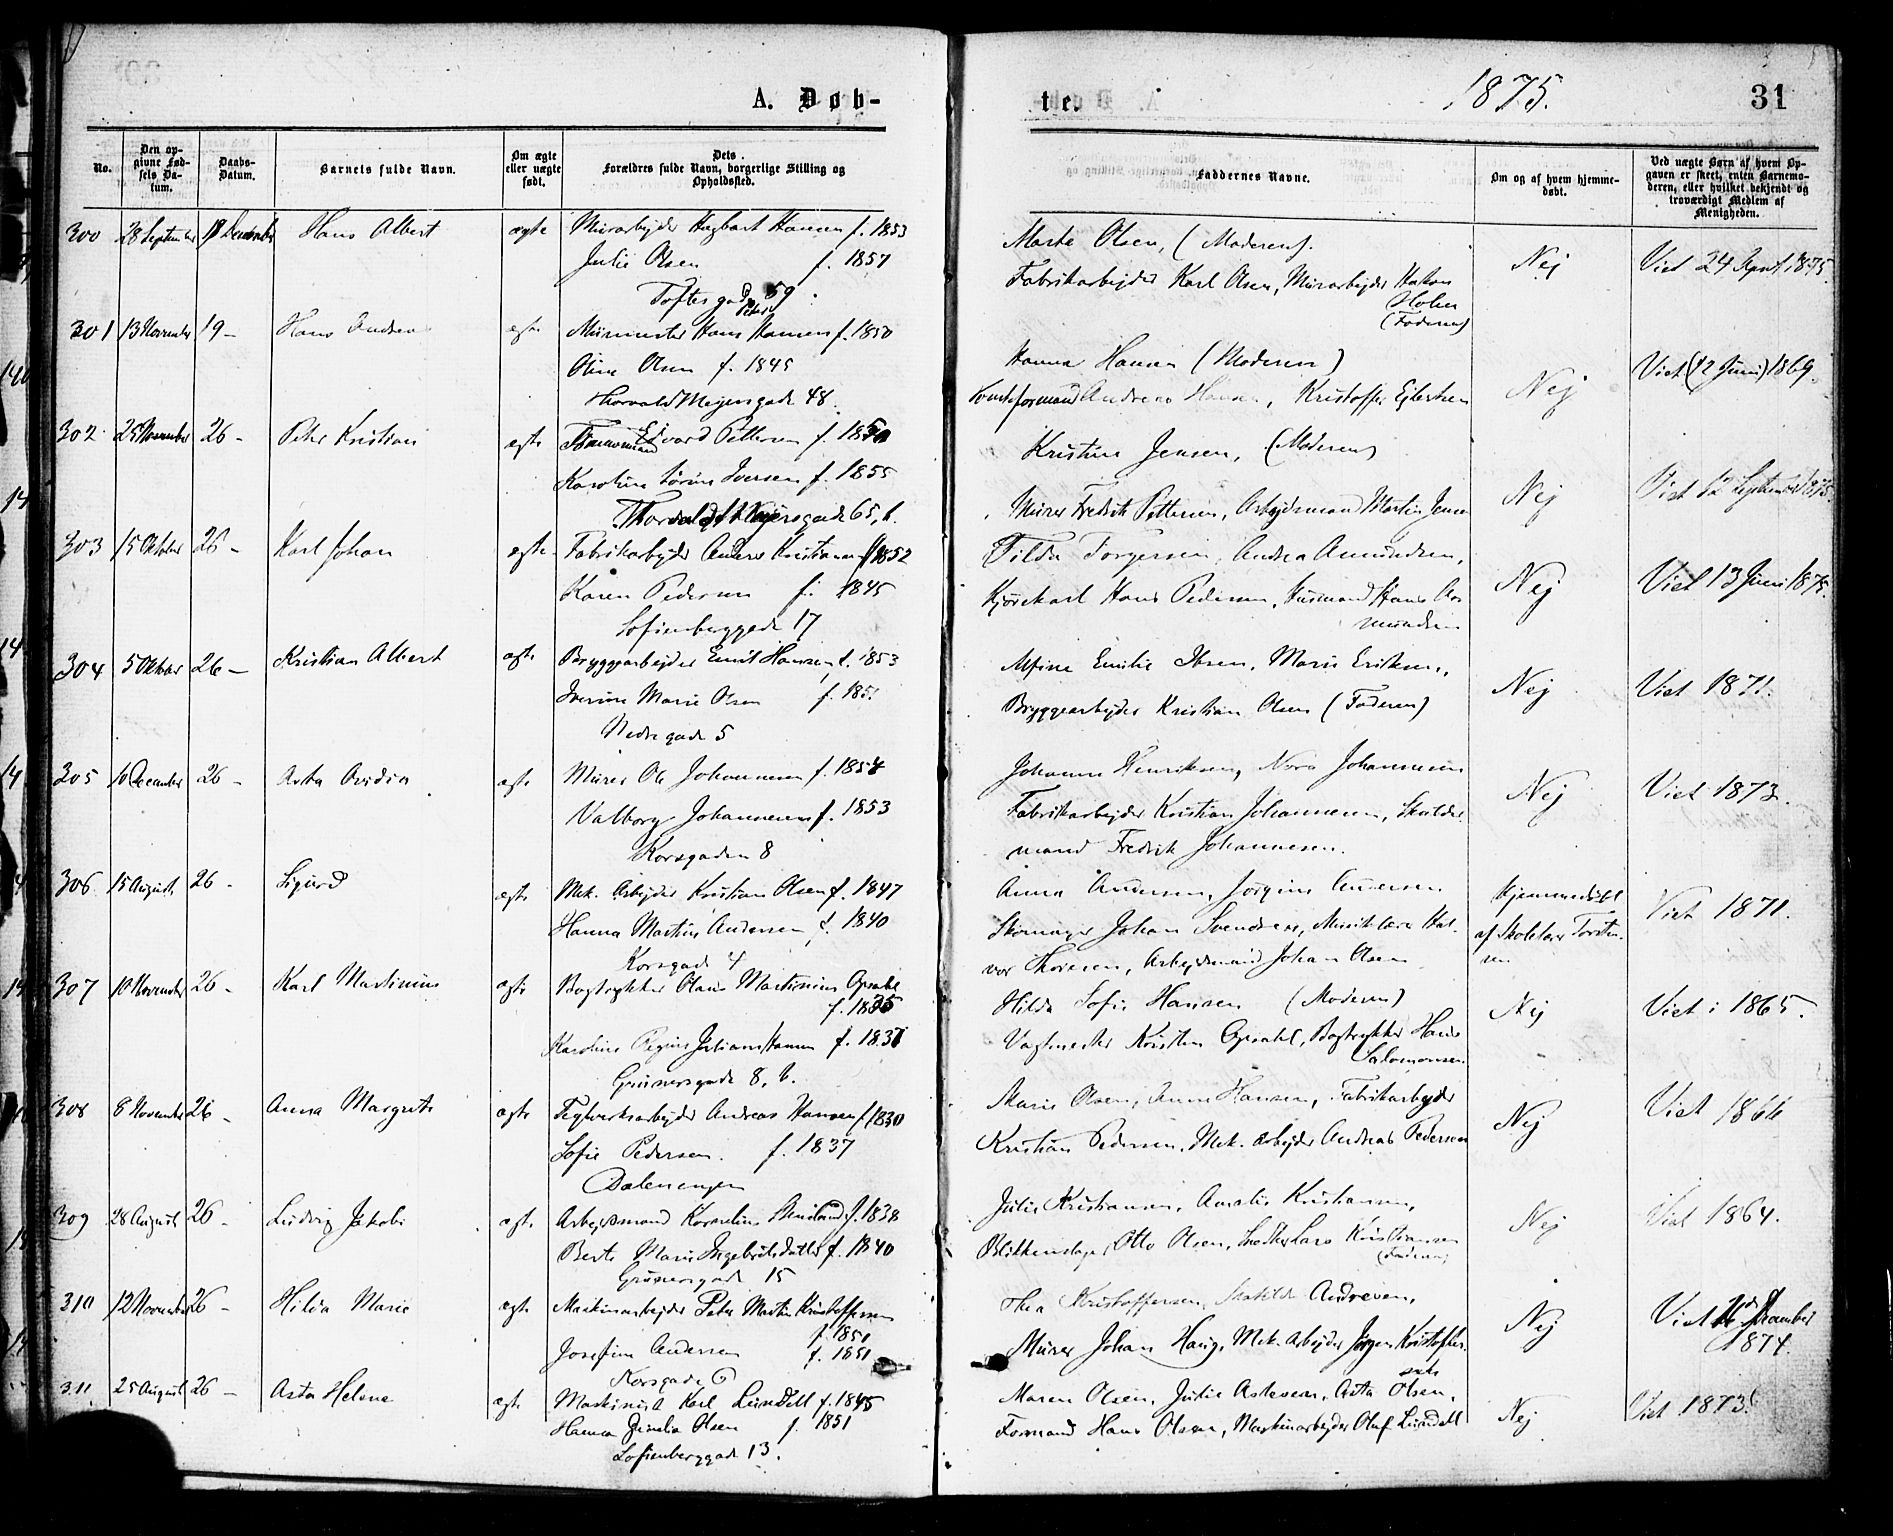 A. Døb-
te.
1875.
31
No.
Den op-
givne Fød-
sels Da-
tum.
Daabs-
Datum.
Barnets fulde Navn.
Om ægte
eller uægte
født.
Dets
Forældres fulde Navn, borgerlige Stilling og
Opholdssted.
Faddernes Navne.
Om og af hvem hjemme-
døbt.
Ved uægte Børn af hvem Op-
gaven er skeet, enten Barnemo-
deren, eller hvilket bekjendt og
troværdigt Medlem af
Menigheden.
300 28 September 18 December Hans Albert ægte Murarbejder Hagbart Hansen f. 1853
Julie Olsen f. 1857
Toftes gade 59
Marte Olsen, (Moderen).
Fabrikarbejder Karl Olsen, Murarbejder Hakon
Holm
(Faderen)
Nej
Viet 24 Sept. 1875
301 13 November 19 - Hans Andreas ægte Murmester Hans Peter Hansen f. 1850
Oline Olsen f. 1845
Thorvald Meyersgade 48
Hanna Hansen (Moderen)
Tomteformand Andreas Hansen, Kristoffer Eilertsen
Nej
Viet (12 Juni) 1869
302 25 November 26 - Peter Kristian ægte Edvard Pettersen f. 1850
Karoline Sørine Iversen f. 1855
Thorvald Meyersgade 65, b.
Kristine Jensen, (Moderen)
Murer Fredrik Pettersen, Arbejdsmand Martin Jensen
Nej
Viet 12 September 1875
303 15 Oktober 26 - Karl Johan ægte Fabrikarbejder Anders Kristiansen f. 1852
Karen Pedersen f. 1845
Sofienberggade 17
Tilda Torgersen, Andrea Amundsen,
Kjørekarl Hans Pedersen, Husmand Hans Aa-
mundsen
Nej
Viet 13 Juni 1875.
304 5 Oktober 26 - Kristian Albert ægte Bryggearbejder Emil Hansen f. 1853
Iverine Marie Olsen f. 1851
Nedregade 5
Mine Emilie Ibsen, Marie Eriksen,
Bryggearbejder Kristian Olsen (Faderen)
Nej
Viet 1871.
305 10 December 26 - Asta Ovidia ægte Murer Ole Johannesen f. 1854
Valborg Johannesen f. 1853
Korsgaden 8
Johanne Henriksen, Nora Johannesen
Fabrikarbejder Kristian Johannesen, Skolder
mand Fredrik Johannesen.
Nej
Viet 1873.
306 15 August 26 - Sigurd ægte Mek. Arbejder Kristian Olsen f. 1847
Hanna Martine Andersen f. 1840
Korsgade 4
Anna Andersen, Jørgine Andersen
Skomager Johan Svendsen, Musiklærer Hal-
vor Thoresen, Arbejdsmand Johan Olsen
Hjemmedøbt
af Skolelærer Torsten-
sen
Viet 1871.
307 10 November 26 - Karl Martinius ægte Bogtrykker Olaus Martinius Opsahl
f. 1835
Karoline Regine Juliane Hansen f. 1837
Grünersgade 8, b.
Hilda Sofie Hansen (Moderen)
Vagtmester Kristian Opsahl, Bogtrykker Hans
Salomonsen
Nej
Viet i 1865.
308 8 November 26 - Anna Margrete ægte Teglverksarbejder Andreas Hansen f. 1830
Sofie Pedersen. f. 1837
Dælenengen
Marie Olsen, Anne Hansen, Fabrikarbejder
Kristian Pedersen, Mek. Arbejder Andreas Pedersen
Nej
Viet 1866
309 28 August 26 - Ludvig Jakob ægte Arbejdsmand Kornelius f. 1838
Berte Marie Ingebretsdatter f. 1840
Grünersgade 15
Julie Kristiansen, Amalie Kristiansen,
Blikkenslager Otto Olsen, Snedker Lars Kristiansen
(Faderen)
Nej
Viet 1864.
310 12 November 26 - Hilda Marie ægte Maskinarbejder Peter Martin Kristoffersen
f. 1851
Josefine Andersen f. 1851
Korsgade 6
Thea Kristoffersen, Matilde Andresen,
Murer Johan Haug, Mek. Arbejder Jørgen Kristoffer-
sen
Nej
Viet December
1874.
311 25 August 26 - Asta Helene ægte Maskinist Karl Lundell f. 1845
Hanna Gunda Olsen f. 1851
Sofienberggade 13.
Maren Olsen, Julie Astesen, Asta Olsen,
Formand Hans Olsen, Maskinarbejder Oluf Lundell
Nej
Viet 1873.